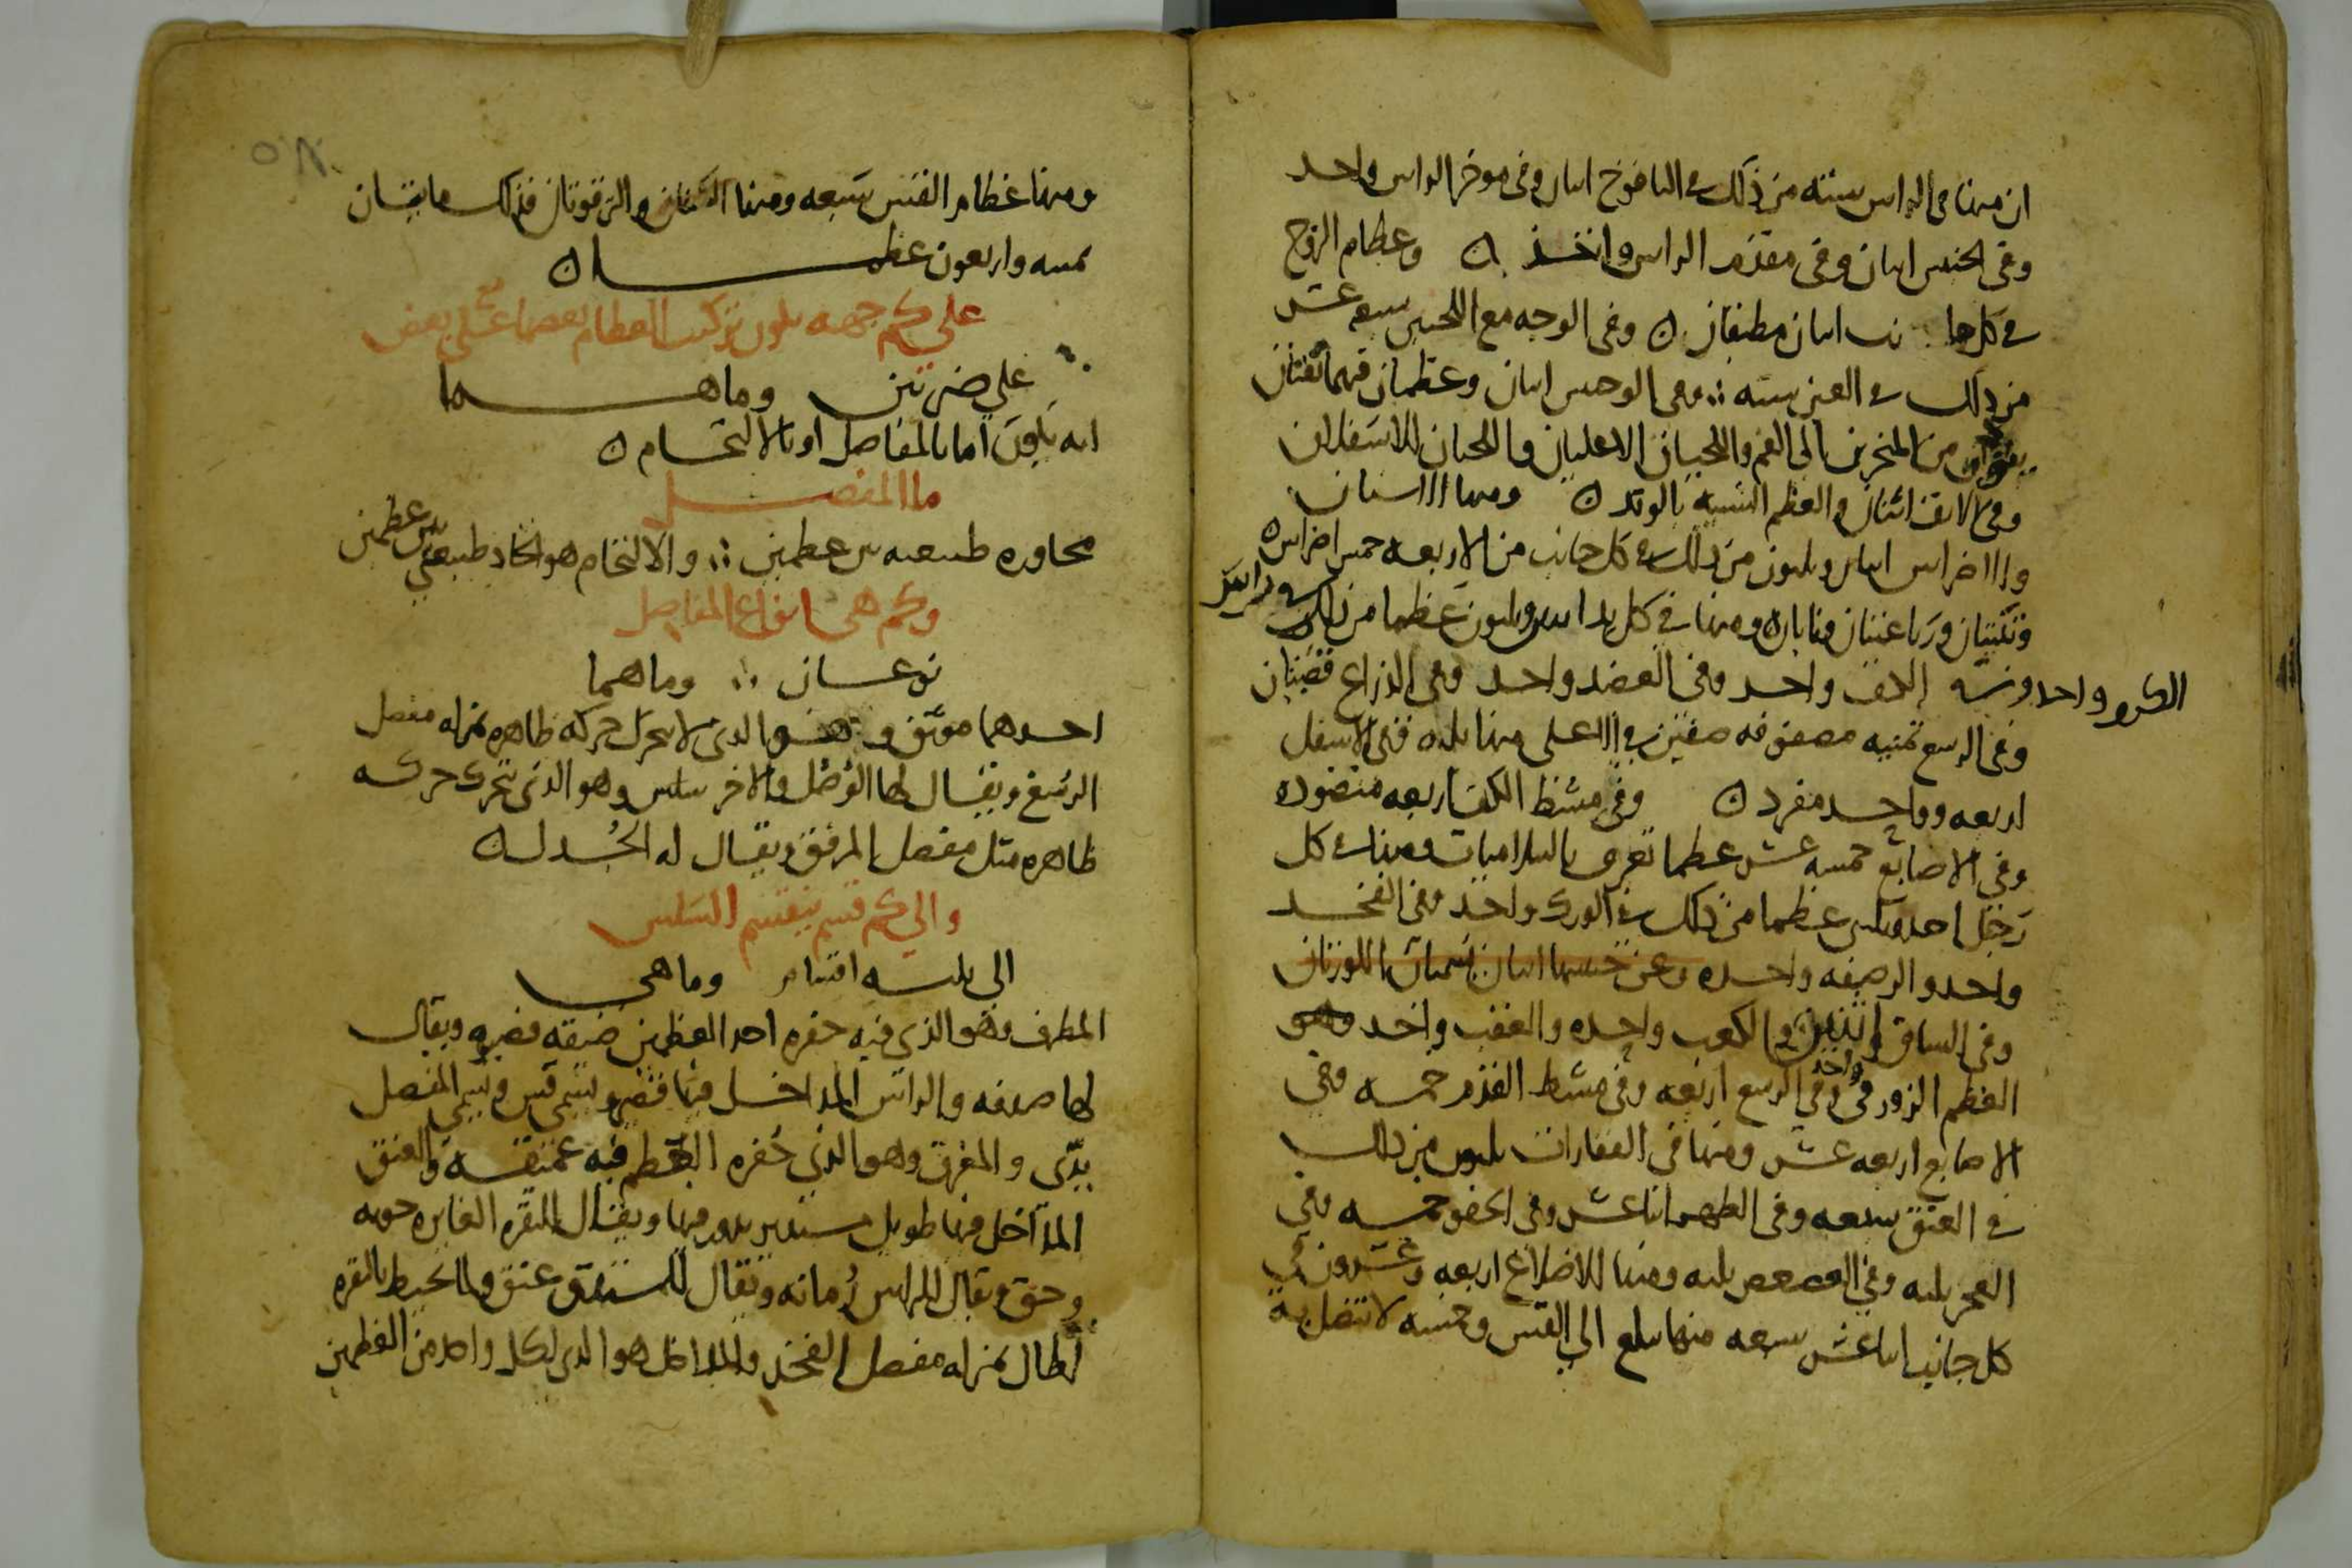 ان منها فى الراس سته من ذلك في اليافوخ اىنان وفى موخر الراس واحد
وفى الجنبين اىنان وفى مقدم الراس واحد ن وعظام الزوج
في كل اىنان مطبقان ن وفى الوجه مع اللحيين سبعه عشر
من ذلك في العين سته وفى الوجنتين اىنان وعظمان فيهما ثقبتان
من المنخرين الى الفم واللحيان الاعليان واللحيان الاسفلان
وفى الانف اثنان والعظم الشبيه بالوتد ن ومنها الاسنان
والاضراس اىنان وىلىون من ذلك في كل جانب من الاربعه خمس اضراس ه
وثنيتان ورباعيتان ونابان ومنها في كل يد وىلىون عظما من ذلك في راس
الكتف واحد وفى العضد واحد وفى الذراع قصبتان
وفى الرسغ ثمنيه مصفوفه صفين في الاعلى منها ىلىه وفى الاسفل
اربعه وواحد مفرد ن وفى مشط الكف اربعه منضوده
وفى الاصابع خمسه عشر عظما تعرف بالسلاميات ومنها في كل
رجل احد وىلىىن عظما من ذلك في الورك واحد وفى الفخد
واحد والرصفه واحده وعن جنبيها اىنان يسميان اللوزتان
وفى الساق اثنين والكعب واحده والعقب واحد وهو
العظم الزورقى واحد وفى الرسغ اربعه وفى مشط القدم خمسه وفى
الاصابع اربعه عشر ومنها في الفقارات ىلىون من ذلك
في العنق سبعه وفى الظهر اىنا عشر وفى الحقو خمسه وفى
العجز ىلىه وفى العصعص ىلىه ومنها للاضلاع اربعه وعشرون في
كل جانب اىنا عشر سبعه منها ىبلع الى القس وخمسه لا تتصل به
ومنها عظام القس سبعه ومنها والترقوتان فذلك مايتان
ثمىىه واربعون عظما ن
على كم جهه ىكون تركيب العظام بعضها على بعض
على ضربين وما هما
انه يكون اما بالمفاصل او بالالتحام ن
ما المفصل
مجاوره طبيعيه بين عظمين والالتحام هو اتحاد طبيعى بين عظمين
وكم هى انواع المفاصل
نوعان وما هما
احدهما موثق وهو الذى لا يتحرك حركه ظاهره بمنزله مفصل
الرسغ ويقال لها الوصل والاخر سلس وهو الذى يتحرك حركه
ظاهره مثل مفصل المرفق ويقال له الجدل ن
والى كم قسم ينقسم السلس
الى ىلىه اقسام وما هى
المطرف وهو الذى فيه حفره احد العظمين ضيقه قصيره ويقال
لها صدفه والراس الداخل فيها قصير ويسمى المفصل
والمغرق وهو الذى حفره العظم فيه عميقه والعنق
الداخل فيها طويل مستدير يدور فيها ويقال للنقره الغايره
وحق ويقال للراس رمانه ويقال للمستدق عنق والمحيط بالنقره
بمنزله مفصل الفخد والمداخل هو الذى لكل واحد من العظمين